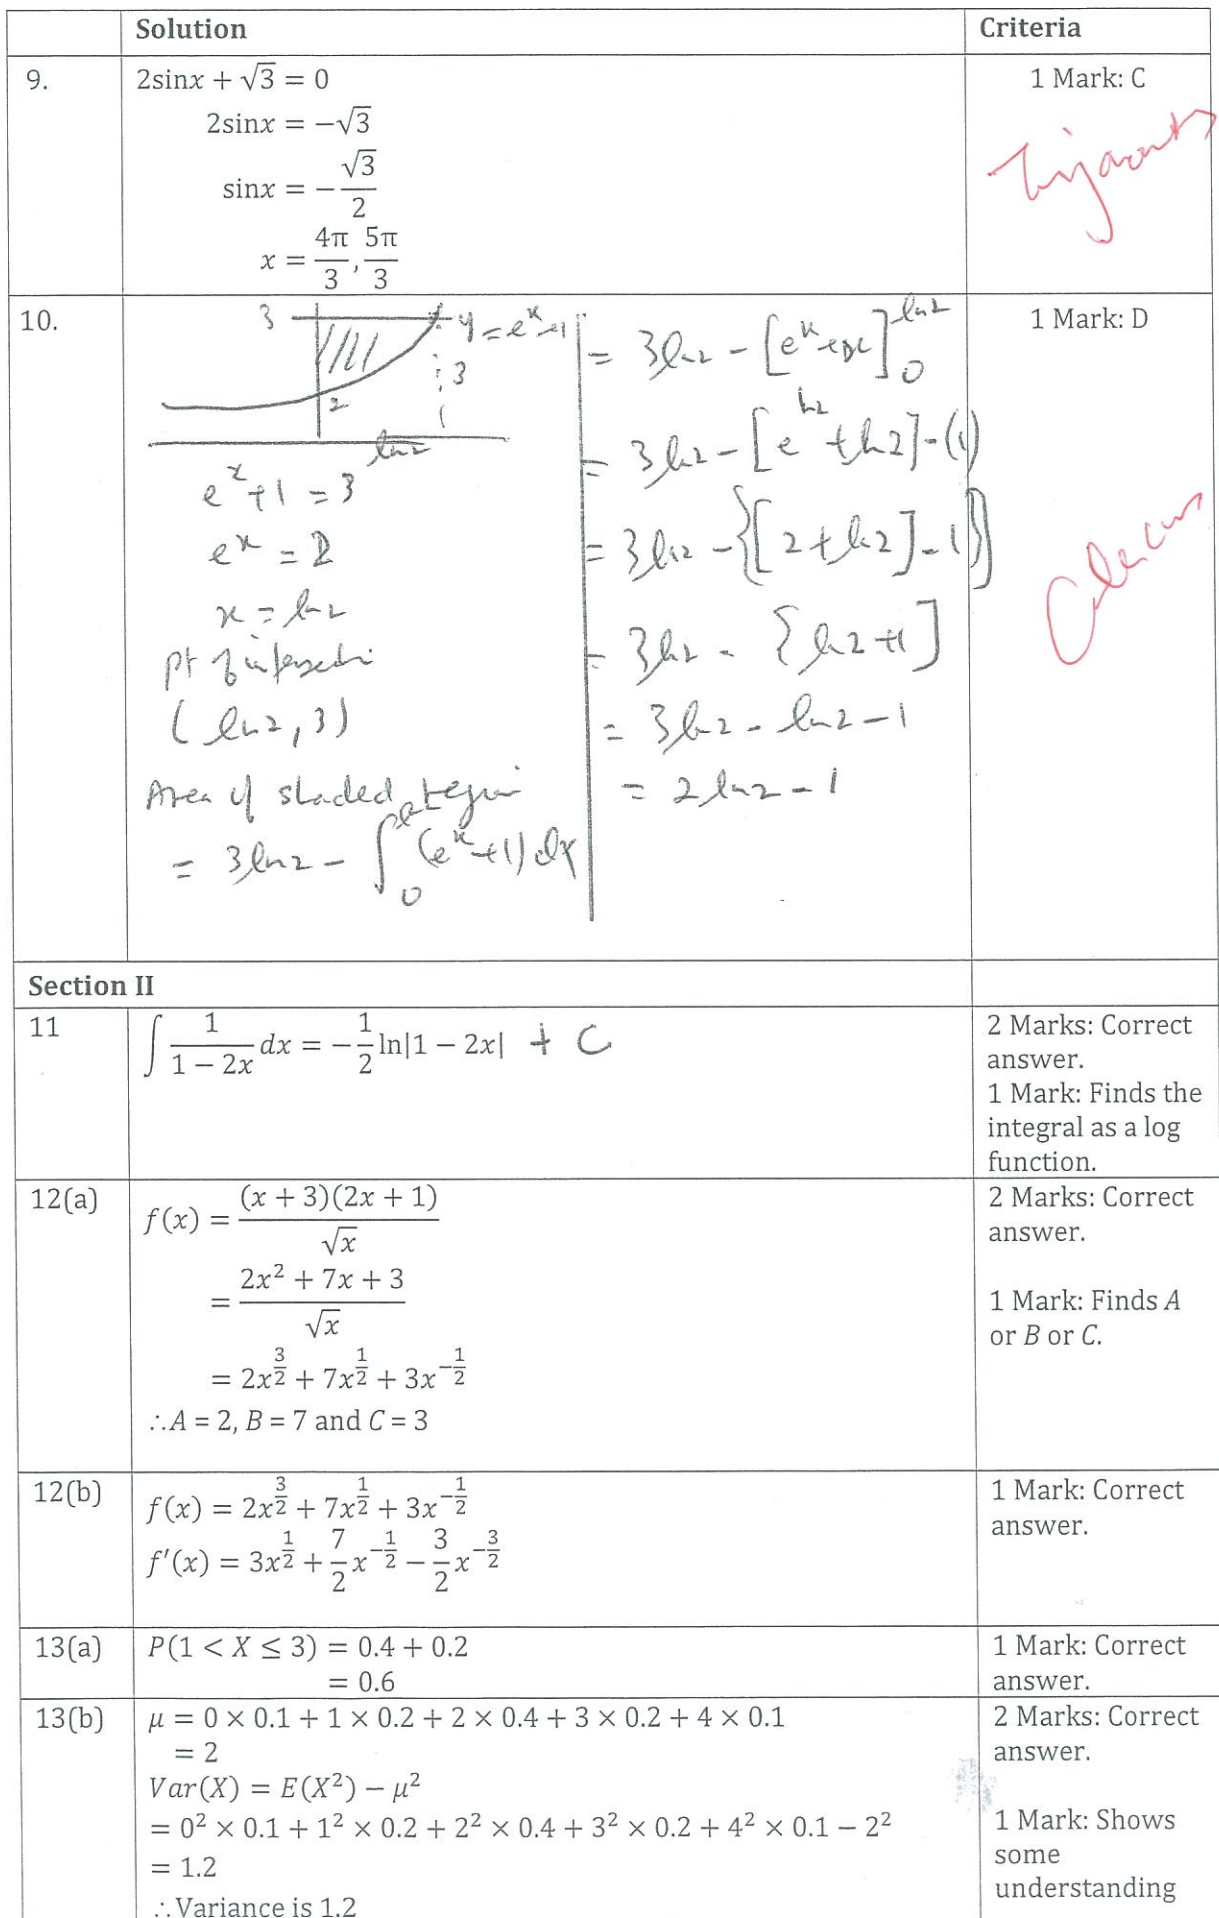 Solution Criteria
9. 2sinx + √3 = 0 1 Mark: C
2sinx = −√3
sinx = −√3/2
x = 4π/3, 5π/3
10. 1 Mark: D
3 y = e^x+1
3
2 1
e^x+1 = 3
e^x = 2
x = ln2
pt of intersection
(ln2, 3)
Area of shaded region
= 3ln2 − ∫₀ (e^x+1) dx
= 3ln2 − [e^x+x]₀^ln2
= 3ln2 − [e^ln2 + ln2] − (1)
= 3ln2 − {[2+ln2] − 1}
= 3ln2 − {ln2+1]
= 3ln2 − ln2 − 1
= 2ln2 − 1
Calculus
Section II
11 ∫ 1/(1 − 2x) dx = −1/2 ln|1 − 2x| + C
2 Marks: Correct
answer.
1 Mark: Finds the
integral as a log
function.
12(a) f(x) = (x + 3)(2x + 1)/√x
= (2x² + 7x + 3)/√x
= 2x^(3/2) + 7x^(1/2) + 3x^(−1/2)
∴A = 2, B = 7 and C = 3
2 Marks: Correct
answer.
1 Mark: Finds A
or B or C.
12(b) f(x) = 2x^(3/2) + 7x^(1/2) + 3x^(−1/2)
f′(x) = 3x^(1/2) + 7/2 x^(−1/2) − 3/2 x^(−3/2)
1 Mark: Correct
answer.
13(a) P(1 < X ≤ 3) = 0.4 + 0.2
= 0.6
1 Mark: Correct
answer.
13(b) μ = 0 × 0.1 + 1 × 0.2 + 2 × 0.4 + 3 × 0.2 + 4 × 0.1
= 2
Var(X) = E(X²) − μ²
= 0² × 0.1 + 1² × 0.2 + 2² × 0.4 + 3² × 0.2 + 4² × 0.1 − 2²
= 1.2
∴Variance is 1.2
2 Marks: Correct
answer.
1 Mark: Shows
some
understanding